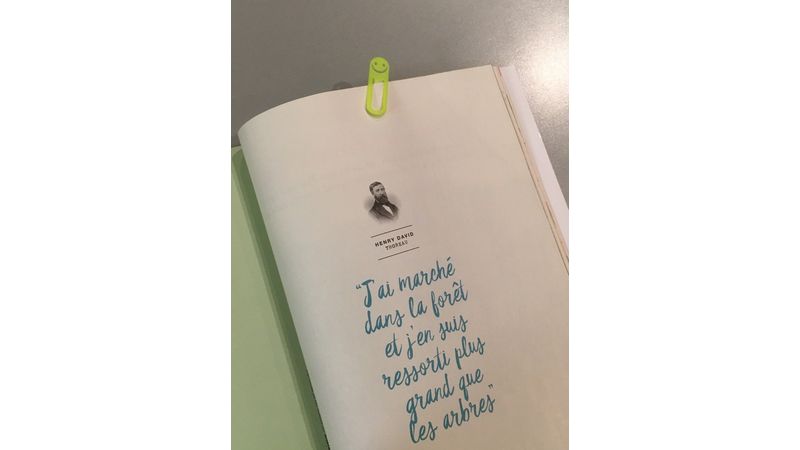 HENRY DAVID
THOREAU
“J'ai marché
dans la forêt
et j'en suis
ressorti plus
grand que
les arbres”